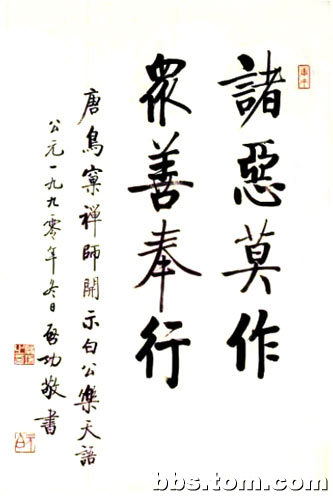 諸惡莫作
眾善奉行
唐鳥窠禪師開示白公樂天語
公元一九九零年冬日啓功敬書
bbs.tom.com